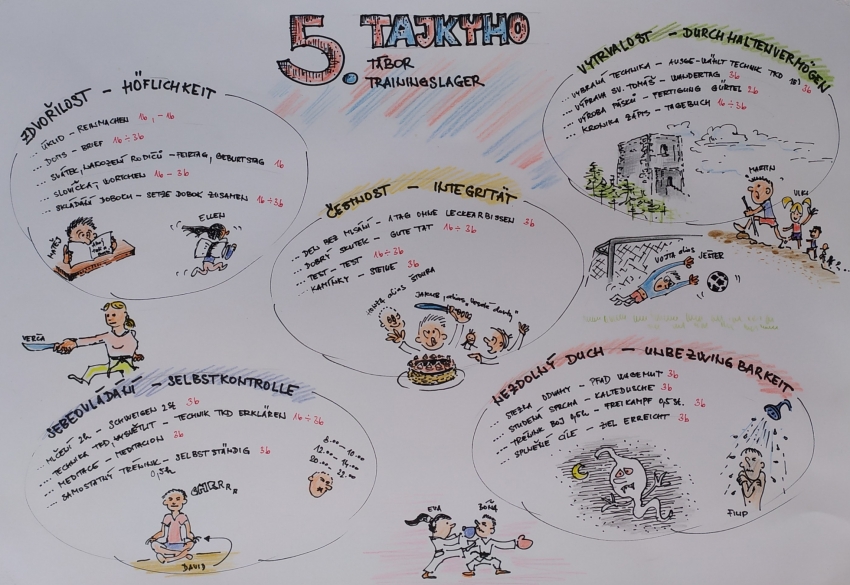 5. TAJKYHO
TÁBOR
TRAININGSLAGER
ZDVOŘILOST - HÖFLICHKEIT
... ÚKLID - REINMACHEN 1b, -1b
... DOPIS - BRIEF 1b÷3b
... SVÁTEK, NAROZENÍ RODIČŮ - FEIERTAG, GEBURTSTAG 1b
... SLOVÍČKA, WÖRTCHEN 1b - 3b
... SKLÁDÁNÍ DOBOCH - SETZE DOBOK ZUSAMEN 1b÷3b
MATĚJ
ELLEN
VYTRVALOST - DURCHHALTENVERMÖGEN
... VYBRANÁ TECHNIKA - AUSGEWÄHLT TECHNIK TKD 3b
... VÝPRAVA SV. TOMÁŠ - WANDERTAG 3b
... VÝROBA PÁSKŮ - FERTIGUNG GÜRTEL 2b
... KRONIKA ZÁPIS - TAGEBUCH 1b÷3b
MARTIN
ULKI
ČESTNOST - INTEGRITÄT
... DEN BEZ MLSÁNÍ - 1 TAG OHNE LECKERBISSEN 3b
... DOBRÝ SKUTEK - GUTE TAT 1b÷3b
... TEST - TEST 1b÷3b
... KAMÍNKY - STEINE 3b
JAKUB
VOJTA alias JEŠTER
VERČA
SEBEOVLÁDÁNÍ - SELBSTKONTROLLE
... MLČENÍ 2h - SCHWEIGEN 2st 3b
... TECHNIKA TKD, VYSVĚTLIT - TECHNIK TKD ERKLÄREN 1b÷3b
... MEDITACE - MEDITACION 3b
... SAMOSTATNÝ TRÉNINK - SELBSTSTÄNDIG 3b
0,5h
8.00 - 10.00
12.00 - 14.00
20.00 - 22.00
DAVID
NEZDOLNÝ DUCH - UNBEZWINGBARKEIT
... STEZKA ODVAHY - PFAD WAGEMUT 3b
... STUDENÁ SPRCHA - KALTEDUSCHE 3b
... TRÉNINK BOJ 0,5h - FREIKAMPF 0,5st. 3b
... SPLNĚNÉ CÍLE - ZIEL ERREICHT 3b
FILIP
EVA
BOŇA